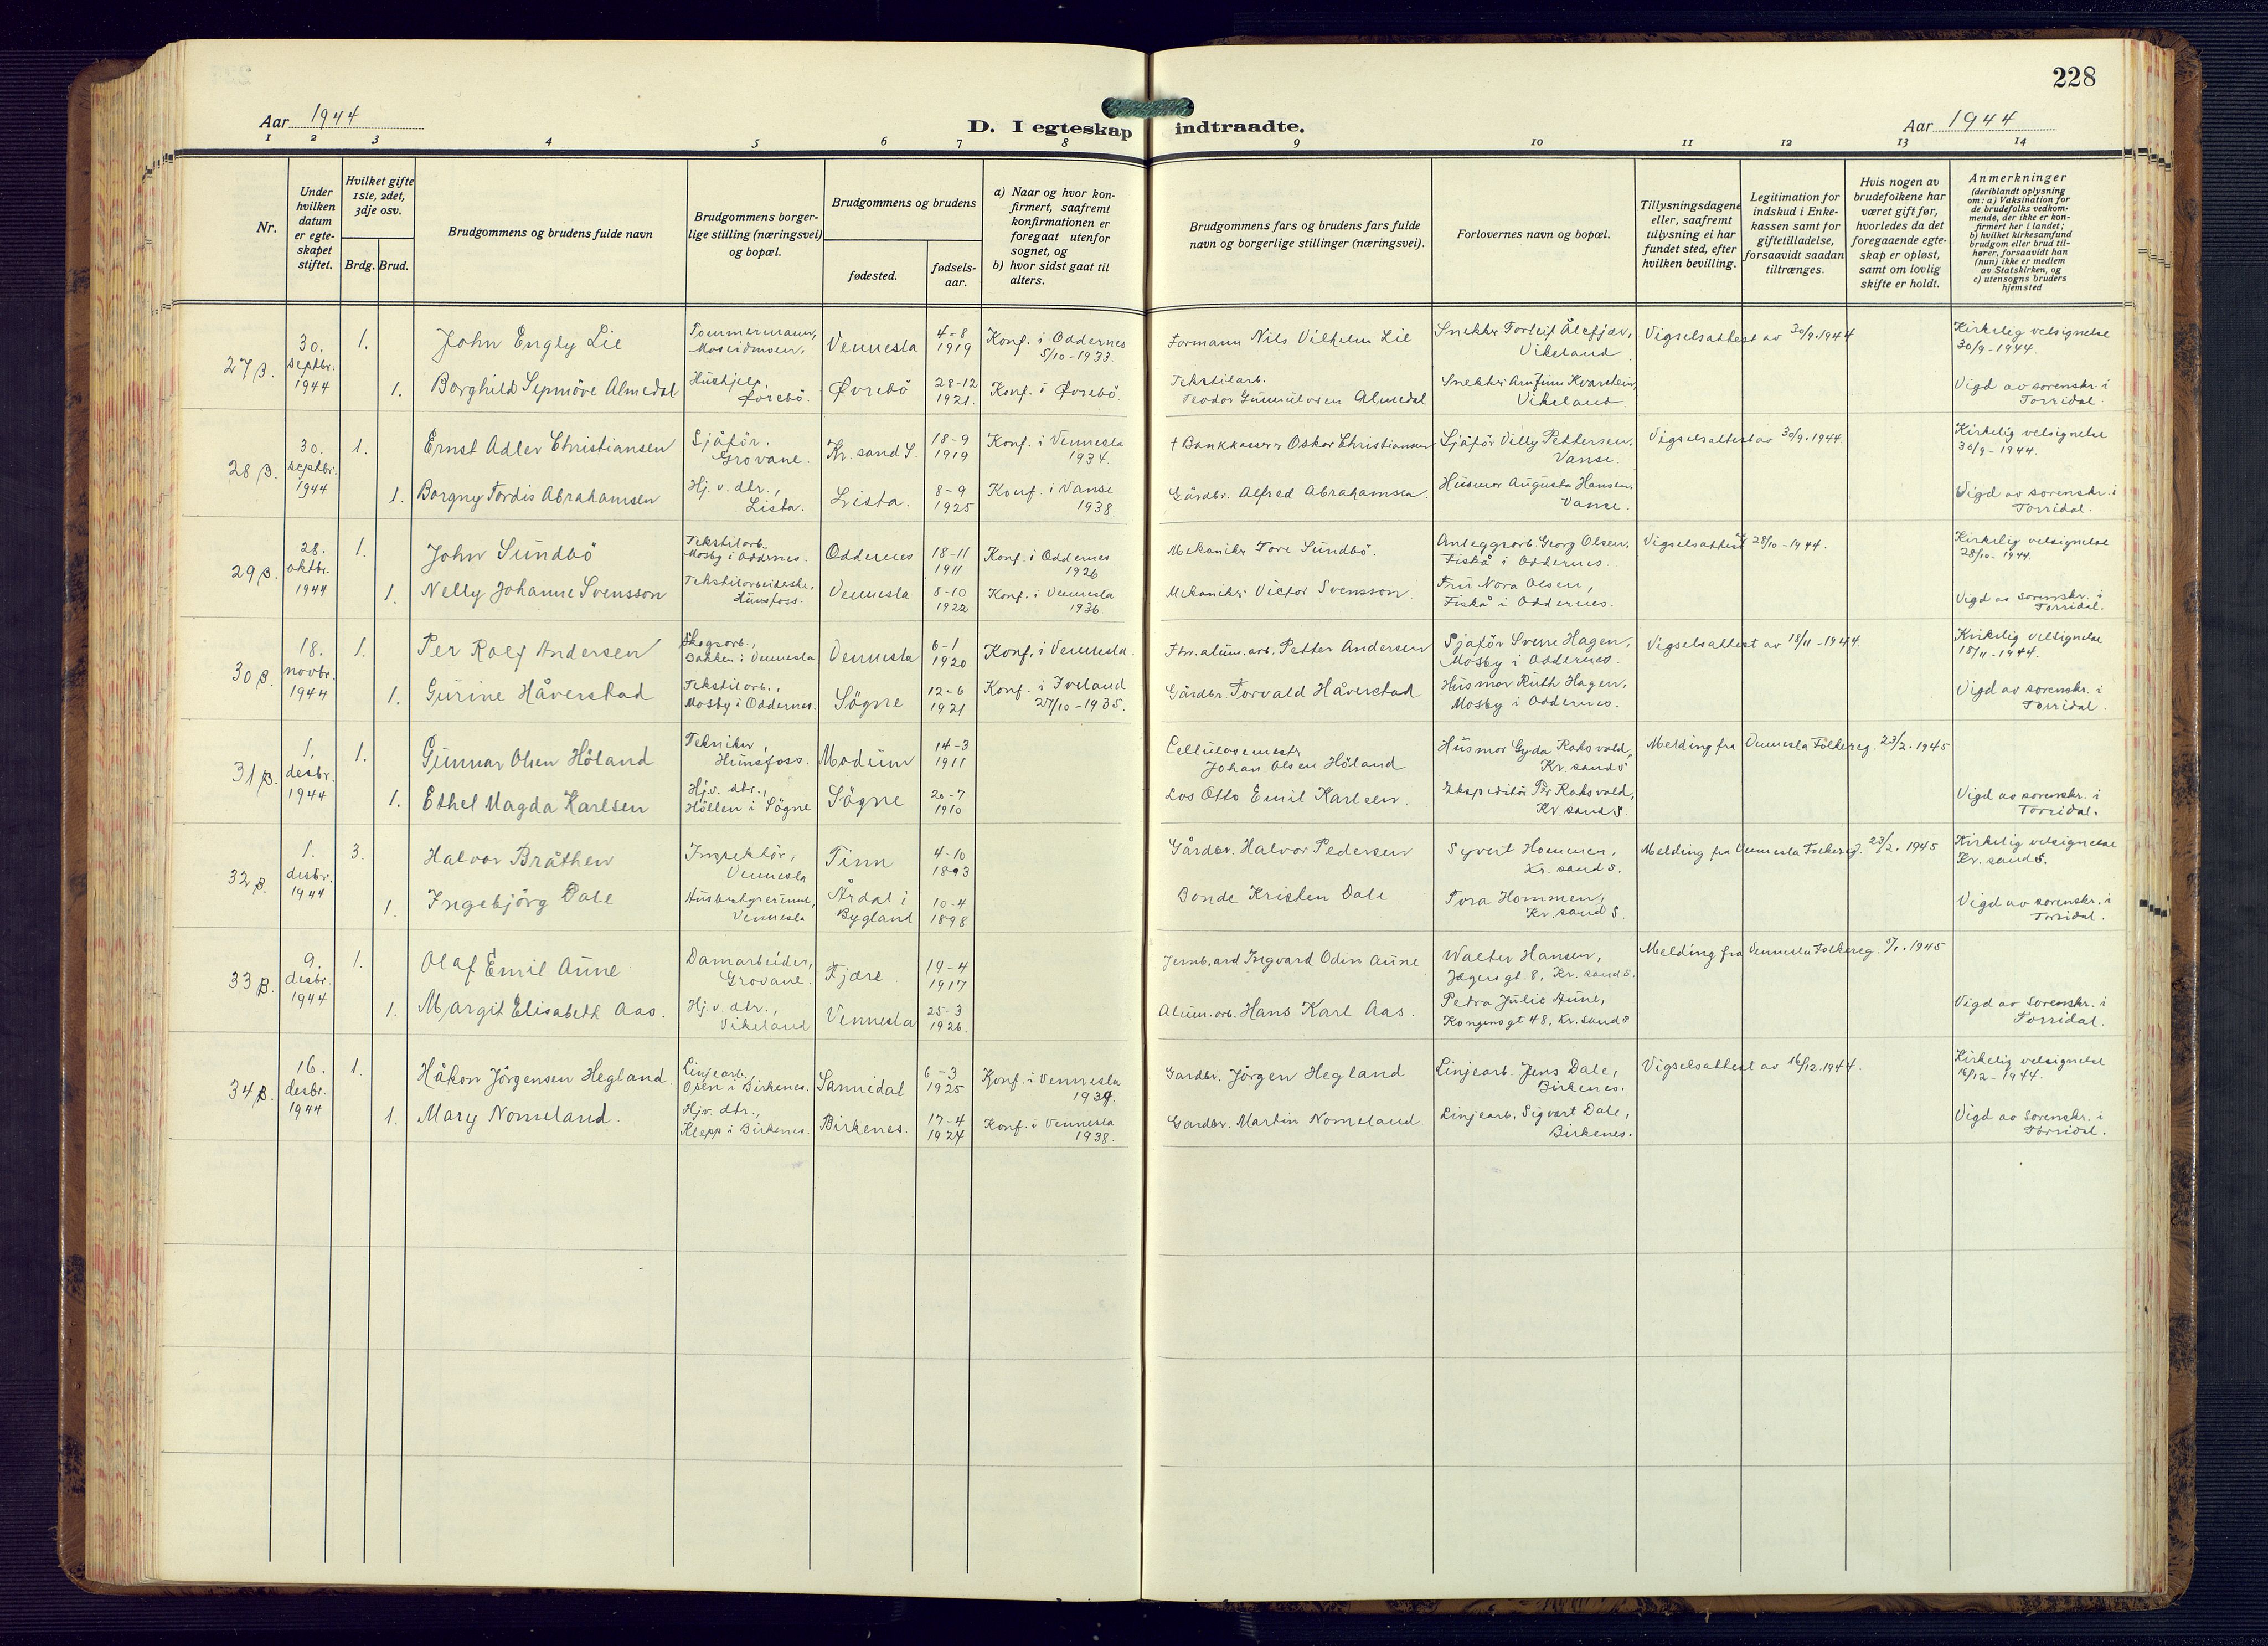 228
Aar 1944
D. I egteskap indtraadte.
Aar 1944
1 2 3 4 5 6 7 8 9 10 11 12 13 14
Nr.
Under hvilken datum er egteskapet stiftet.
Hvilket gifte 1ste, 2det, 3dje osv.
Brdg. Brud.
Brudgommens og brudens fulde navn
Brudgommens borgerlige stilling (næringsvei) og bopæl.
Brudgommens og brudens
fødested.
fødselsaar.
a) Naar og hvor konfirmert, saafremt konfirmationen er foregaat utenfor sognet, og
b) hvor sidst gaat til alters.
Brudgommens fars og brudens fars fulde navn og borgerlige stillinger (næringsvei).
Forlovernes navn og bopæl.
Tillysningsdagene eller, saafremt tillysning ei har fundet sted, efter hvilken bevilling.
Legitimation for indskud i Enkekassen samt for giftetilladelse, forsaavidt saadan tiltrænges.
Hvis nogen av brudefolkene har været gift før, hvorledes da det foregaaende egteskap er opløst, samt om lovlig skifte er holdt.
Anmerkninger
(deriblandt oplysning om: a) Vaksination for de brudefolks vedkommende, der ikke er konfirmert her i landet; b) hvilket kirkesamfund brudgom eller brud tilhører, forsaavidt han (hun) ikke er medlem av Statskirken, og c) utensogns bruders hjemsted
27 B. 30. septbr. 1944
1. John Engly Lie Tømmermann, Vennesla 4-8 1919 Konf. i Oddernes 5/10-1933. Formann Nils Vilhelm Lie Snekker Torleif Ålefjær, Vikeland Vigselsattest av 30/9.1944 Kirkelig velsignelse 30/9-1944.
1. Borghild Sepmöve Almedal Hushjelp, Øvrebö. Øvrebö 28-12 1921. Konf. i Øvrebö. Tekstilarb. Teodor Gunnulvsen Almedal Snekker Arnfinn Kvarstein, Vikeland. Vigd av sorenskr. i Torridal.
28 B. 30. septbr. 1944
1. Ernst Adler Christiansen Sjåför. Grovane. Kr. sand S. 18-9 1919 Konf. i Vennesla 1934. † Bankkasserer Oskar Christiansen Sjåför Villy Pettersen, Vanse. Vigselsattest av 30/9.1944. Kirkelig velsignelse 30/9-1944.
1. Borgny Tordis Abrahamsen Hj. v. dtr., Lista. Lista. 8-9 1925 Konf. i Vanse 1938. Gårdbr. Alfred Abrahamsen. Husmor Augusta Hansen, Vanse. Vigd av sorenskr. i Torridal.
29 B. 28. oktbr. 1944
1. John Sundbö Tekstilarb. Mosby i Oddernes. Oddernes 18-11 1911 Konf. i Oddernes 1926 Mekaniker Tore Sundbö. Anleggsarb. Georg Olsen, Fiskå i Oddernes. Vigselsattest av 28/10-1944. Kirkelig velsignelse 28/10-1944.
1. Nelly Johanne Svensson Tekstilarbeiderske, Hunsfoss. Vennesla 8-10 1922 Konf. i Vennesla 1936. Mekaniker Victor Svensson. Fru Nora Olsen, Fiskå i Oddernes. Vigd av sorenskr. i Torridal.
30 B. 18. novbr. 1944
1. Per Rolf Andersen Skogsarb., Bakken i Vennesla Vennesla 6-1 1920 Konf. i Vennesla. Fhv. alum. arb. Petter Andersen Sjåför Sverre Hagen, Mosby i Oddernes. Vigselsattest av 18/11-1944. Kirkelig velsignelse 18/11-1944.
1. Gurine Håverstad Tekstilarb., Mosby i Oddernes. Sögne 12-6 1921 Konf. i Iveland 27/10-1935. Gårdbr. Torvald Håverstad Husmor Ruth Hagen, Mosby i Oddernes. Vigd av sorenskr. i Torridal.
31 B. 1. desbr. 1944
1. Gunnar Olsen Höland Tekniker, Hunsfoss. Modum 14-3 1911 Cellulosemestr Johan Olsen Höland Husmor Gyda Roksvold, Kr. sand S Melding fra Vennesla Folkereg. 23/2. 1945
1. Ethel Magda Karlsen Hj. v. dtr., Höllen i Sögne Sögne 20-7 1910 Los Otto Emil Karlsen. Ekspeditör Per Roksvold, Kr. sand S. Vigd av sorenskr. i Torridal.
32 B. 1. desbr. 1944
3. Halvor Bråthen Inspektör, Vennesla Tinn 4-10 1893 Gårdbr. Halvor Pedersen Syvert Hommen, Kr. sand S. Melding fra Vennesla Folkereg. 23/2. 1945 Kirkelig velsignelse Kr. sand S.
1. Ingebjörg Dale Husbestyrerinne, Vennesla Årdal i Bygland 10-4 1898 Bonde Kristen Dale Tora Hommen, Kr. sand S. Vigd av sorenskr. i Torridal.
33 B. 9. desbr. 1944
1. Olaf Emil Aune Damarbeider, Grovane. Fjære 19-4 1917 Ingvard Odin Aune Walter Hansen, Jægersgt. 8, Kr. sand S. Melding fra Vennesla Folkereg. 5/1. 1945
1. Margit Elisabeth Aas. Hj. v. dtr., Vikeland Vennesla 25-3 1926. Alum. arb. Hans Karl Aas. Petra Julie Aune, Kongensgt 48, Kr. sand S Vigd av Sorenskr. i Torridal.
34 B. 16. desbr. 1944
1. Håkon Jörgensen Hegland. Linjearb., Open i Birkenes. Sannidal 6-3 1925 Konf. i Vennesla 1939. Gardbr. Jörgen Hegland Linjearb. Jens Dale, Birkenes. Vigselsattest av 16/12.1944. Kirkelig velsignelse 16/12-1944.
1. Mary Nomeland. Hjv. dtr., Klepp i Birkenes. Birkenes. 17-4 1924 Konf. i Vennesla 1938. Gardbr. Martin Nomeland. Linjearb. Sigvart Dale, Birkenes. Vigd av Sorenskr. i Torridal.